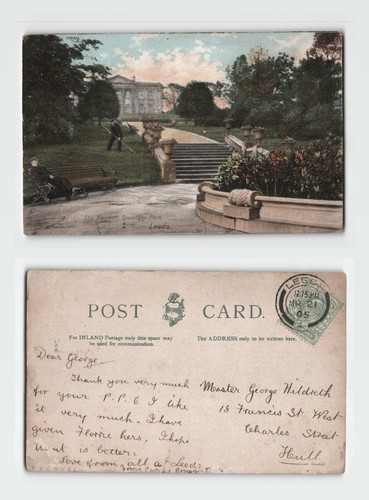 Leeds.
POST CARD.
For INLAND Postage only this space may
be used for communication.
The ADDRESS only to be written here.
LEEDS
12.15 PM
MR 21
05
Dear George.
Thank you very much
for your P.P.C I like
it very much. I have
given Florrie hers. I hope
is better.
Love from all at Leeds
Master George Hildreth
18 Francis St. West
Charles Street
Hull